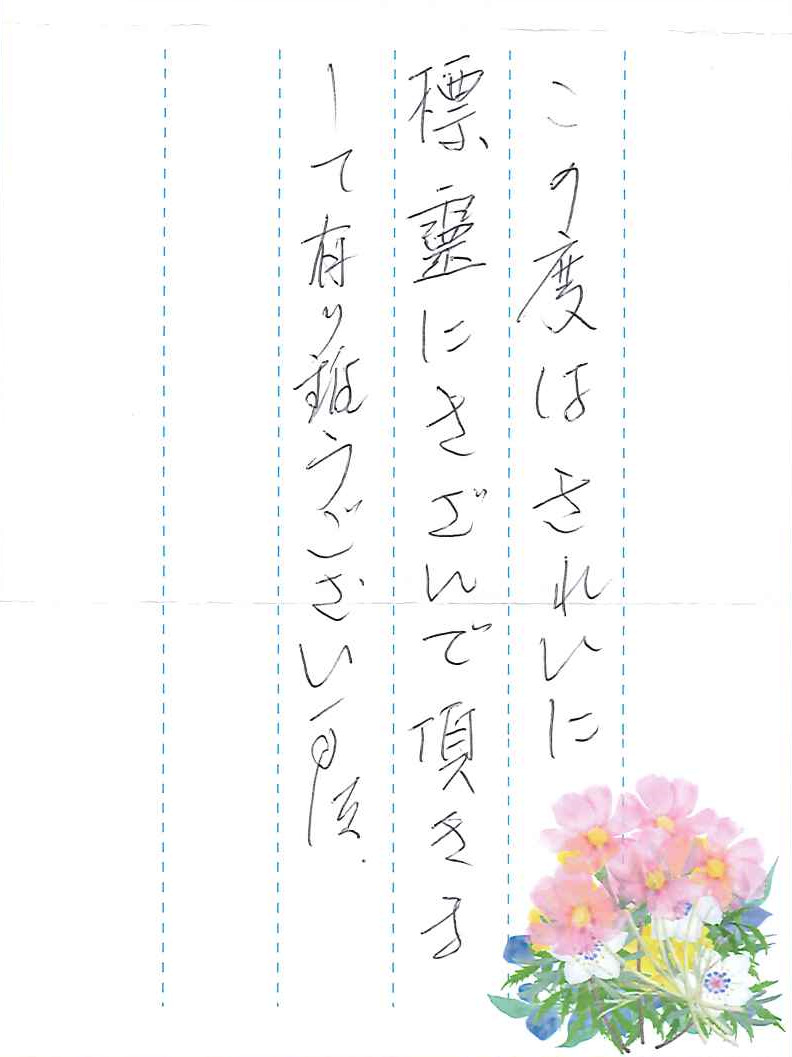 この度はきれいに
標霊にきざんで頂きま
して有り難うございました.